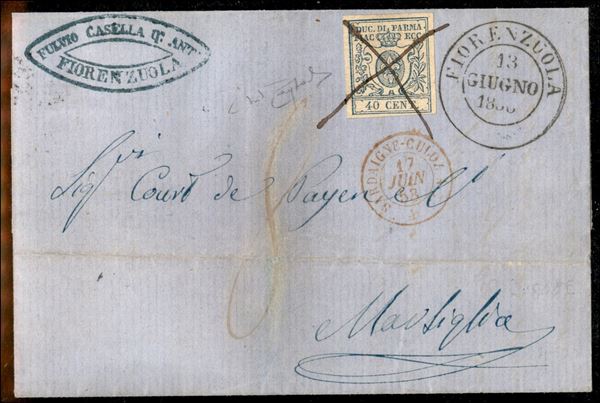 FULVIO CASELLA Q.m ANT.
FIORENZUOLA
DUC. DI PARMA
PIAC. ECC.
40 CENT.
FIORENZUOLA
13
GIUGNO
SARDAIGNE-CULOZ
17
JUIN
58
Sigri Court de Payen e Co
Marsiglia